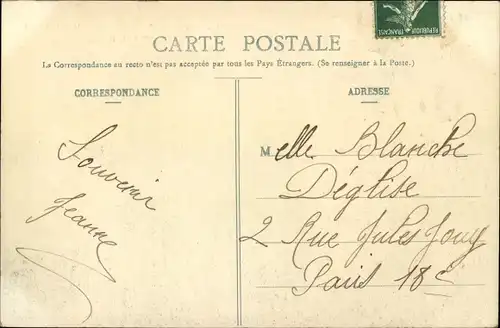 RÉPUBLIQUE FRANÇAISE
CARTE POSTALE
La Correspondance au recto n'est pas acceptée par tous les Pays Étrangers. (Se renseigner à la Poste.)
CORRESPONDANCE
Souvenir
Jeanne
ADRESSE
Melle Blanche
Déglise
2 Rue Jules Jouy
Paris 18e